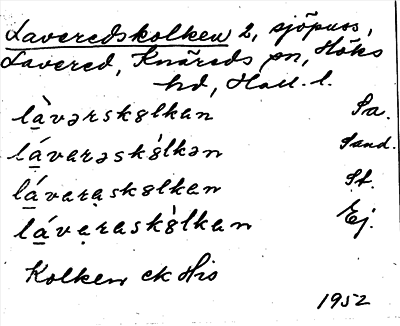 Laveredskolken 2, sjöpuss,
Lavered, Knäreds sn, Höks
hd, Hall. l.
là̱vərskɵlkan Sa.
lá̱varəskɵ̀lkən Sand.
lá̱varaskɵlkan St.
lá̱varaskɵ̀lkan Ej.
Kolken ek His
1952